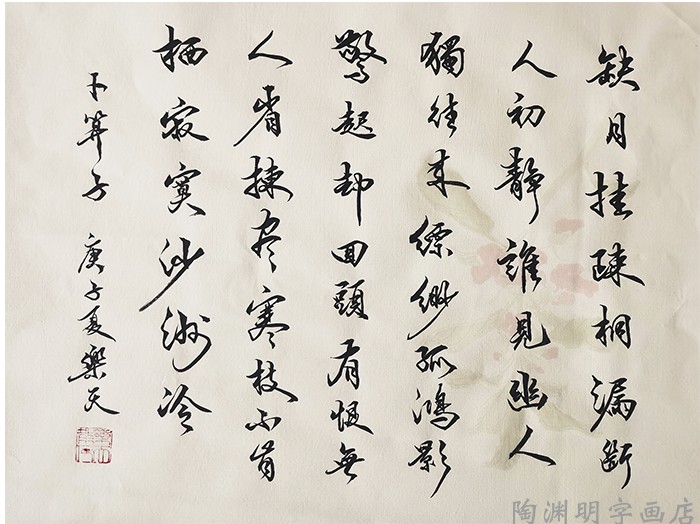 缺月挂疎桐漏断
人初静誰見幽人
獨往来缥缈孤鴻影
驚起却回頭有恨無
人省揀尽寒枝不肯
栖寂寞沙洲冷
卜算子 庚子夏樂天
陶渊明字画店